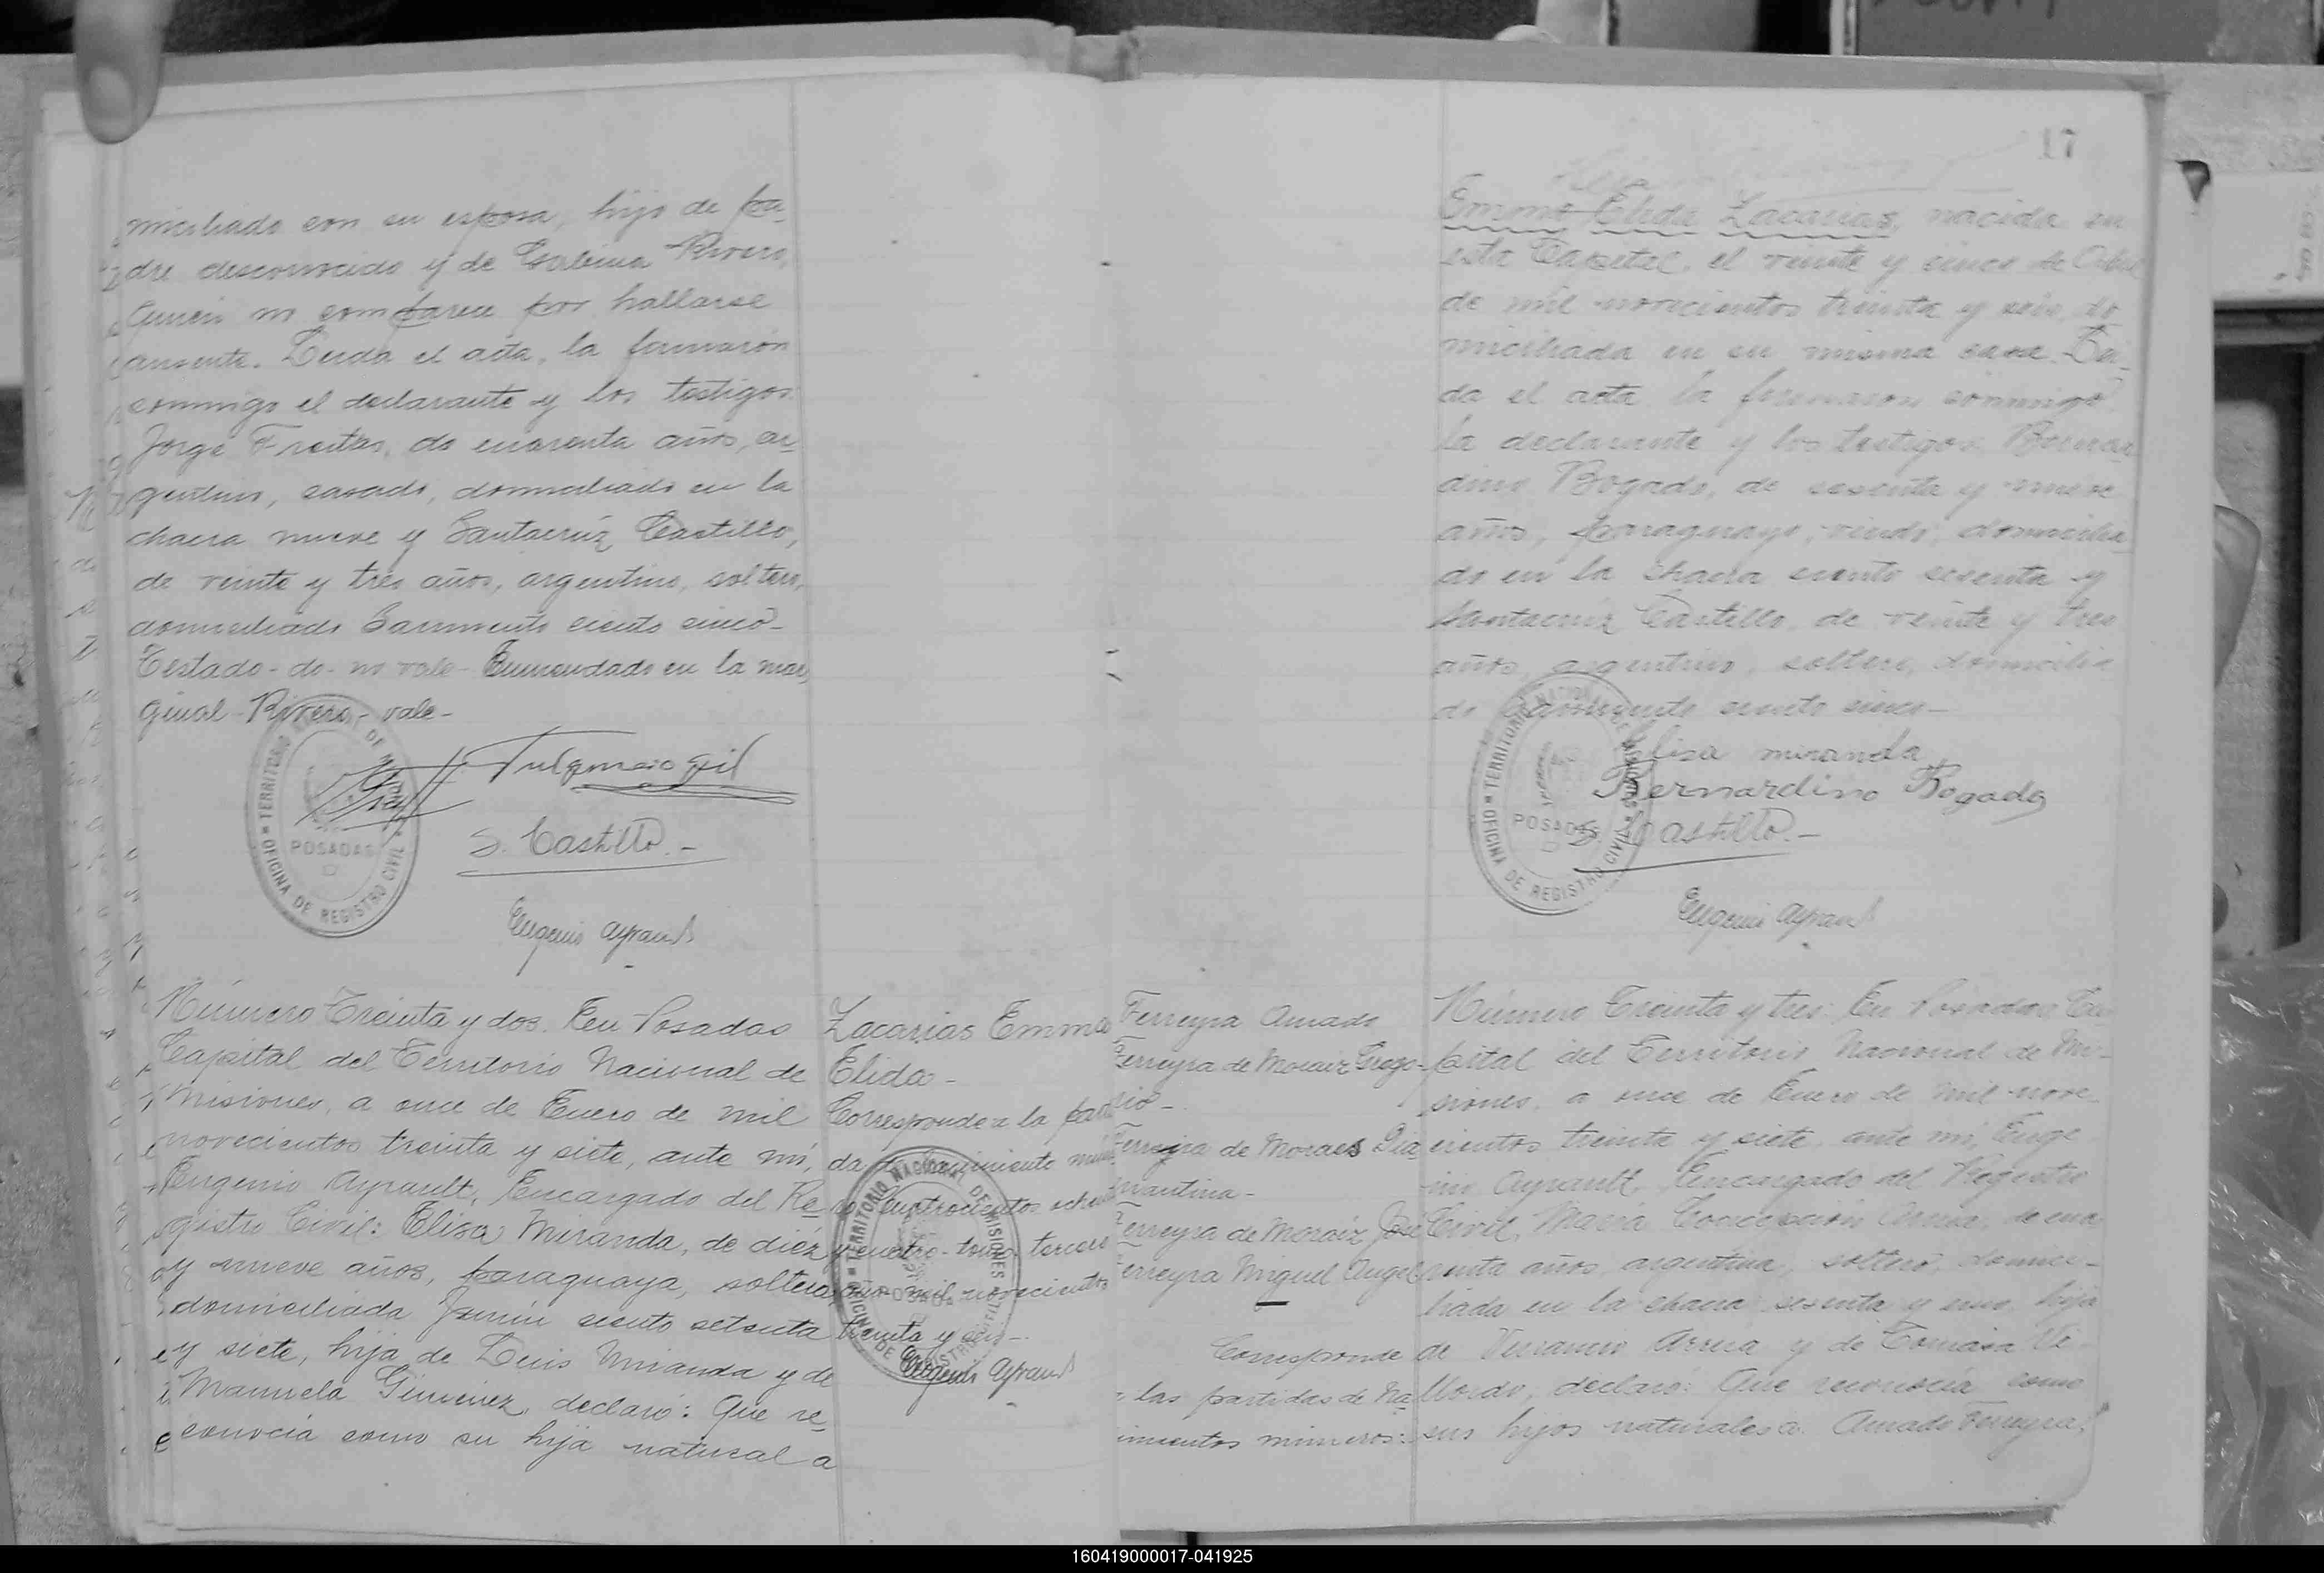 miciliado con su esposa, hijo de pa-
dre desconocido y de Gabina Rivero,
quien no comparece por hallarse
ausente. Leida el acta, la firmaron
conmigo el declarante y los testigos
Jorge Freitas, de cuarenta años, ar-
gentino, casado, domiciliado en la
chacra nueve y Santacruz Castillo,
de veinte y tres años, argentino, soltero,
domiciliado Sarmiento ciento cinco-
Testado-do-no vale-Enmendado en la mar,
ginal-Rivero-vale-
Fulgencio Gil
S. Castillo.-
Eugenio Ayrault
TERRITORIO NACIONAL DE MISIONES
POSADAS
OFICINA DE REGISTRO CIVIL
Número Treinta y dos. En Posadas
Capital del Territorio Nacional de
Misiones, a once de Enero de mil
novecientos treinta y siete, ante mí,
Eugenio Ayrault, Encargado del Re-
gistro Civil: Elisa Miranda, de diéz
y nueve años, paraguaya, soltera,
domiciliada Junín ciento setenta
y siete, hija de Luis Miranda y de
Manuela Gimenez, declaró: Que re-
conocía como su hija natural a
Zacarias Emma
Elida-
Corresponde a la parti
da de nacimiento núme
ro cuatrocientos ochenta
y cuatro-tomo tercero
año mil novecientos
treinta y seis-.
Eugenio Ayrault
TERRITORIO NACIONAL DE MISIONES
POSADAS
OFICINA DE REGISTRO CIVIL
17
Emma Elida Zacarias, nacida en
esta Capital, el veinte y cinco de Abril
de mil novecientos treinta y seis, do
miciliada en su misma casa. Lei-
da el acta la firmaron conmigo
la declarante y los testigos Bernar
dino Bogado, de sesenta y nueve
años, paraguayo, viudo, domicilia-
do en la chacra ciento sesenta y
Santacruz Castillo, de veinte y tres
años, argentino, soltero, domicilia
do Sarmiento ciento cinco-
Elisa miranda
Bernardino Bogado
S. Castillo.-
Eugenio Ayrault
TERRITORIO NACIONAL DE MISIONES
POSADAS
OFICINA DE REGISTRO CIVIL
Ferreyra Amado
Ferreyra de Moraiz Grego-
rio-
Ferreyra de Moraes Dia
mantina-
Ferreyra de Moraiz José
Ferreyra Miguel Angel
Corresponde
a las partidas de Na
cimientos números:
Número Treinta y tres. En Posadas Ca-
pital del Territorio Nacional de Mi-
siones, a once de Enero de mil nove-
cientos treinta y siete, ante mí, Euge
nio Ayrault, Encargado del Registro
Civil, María Concepción Arrua, de cua
renta años, argentina, soltera, domici-
liada en la chacra sesenta y uno, hija
de Venancio Arrua y de Tomasa Ve-
llordo, declaró: Que reconocía como
sus hijos naturales a Amado Ferreyra,
160419000017-041925